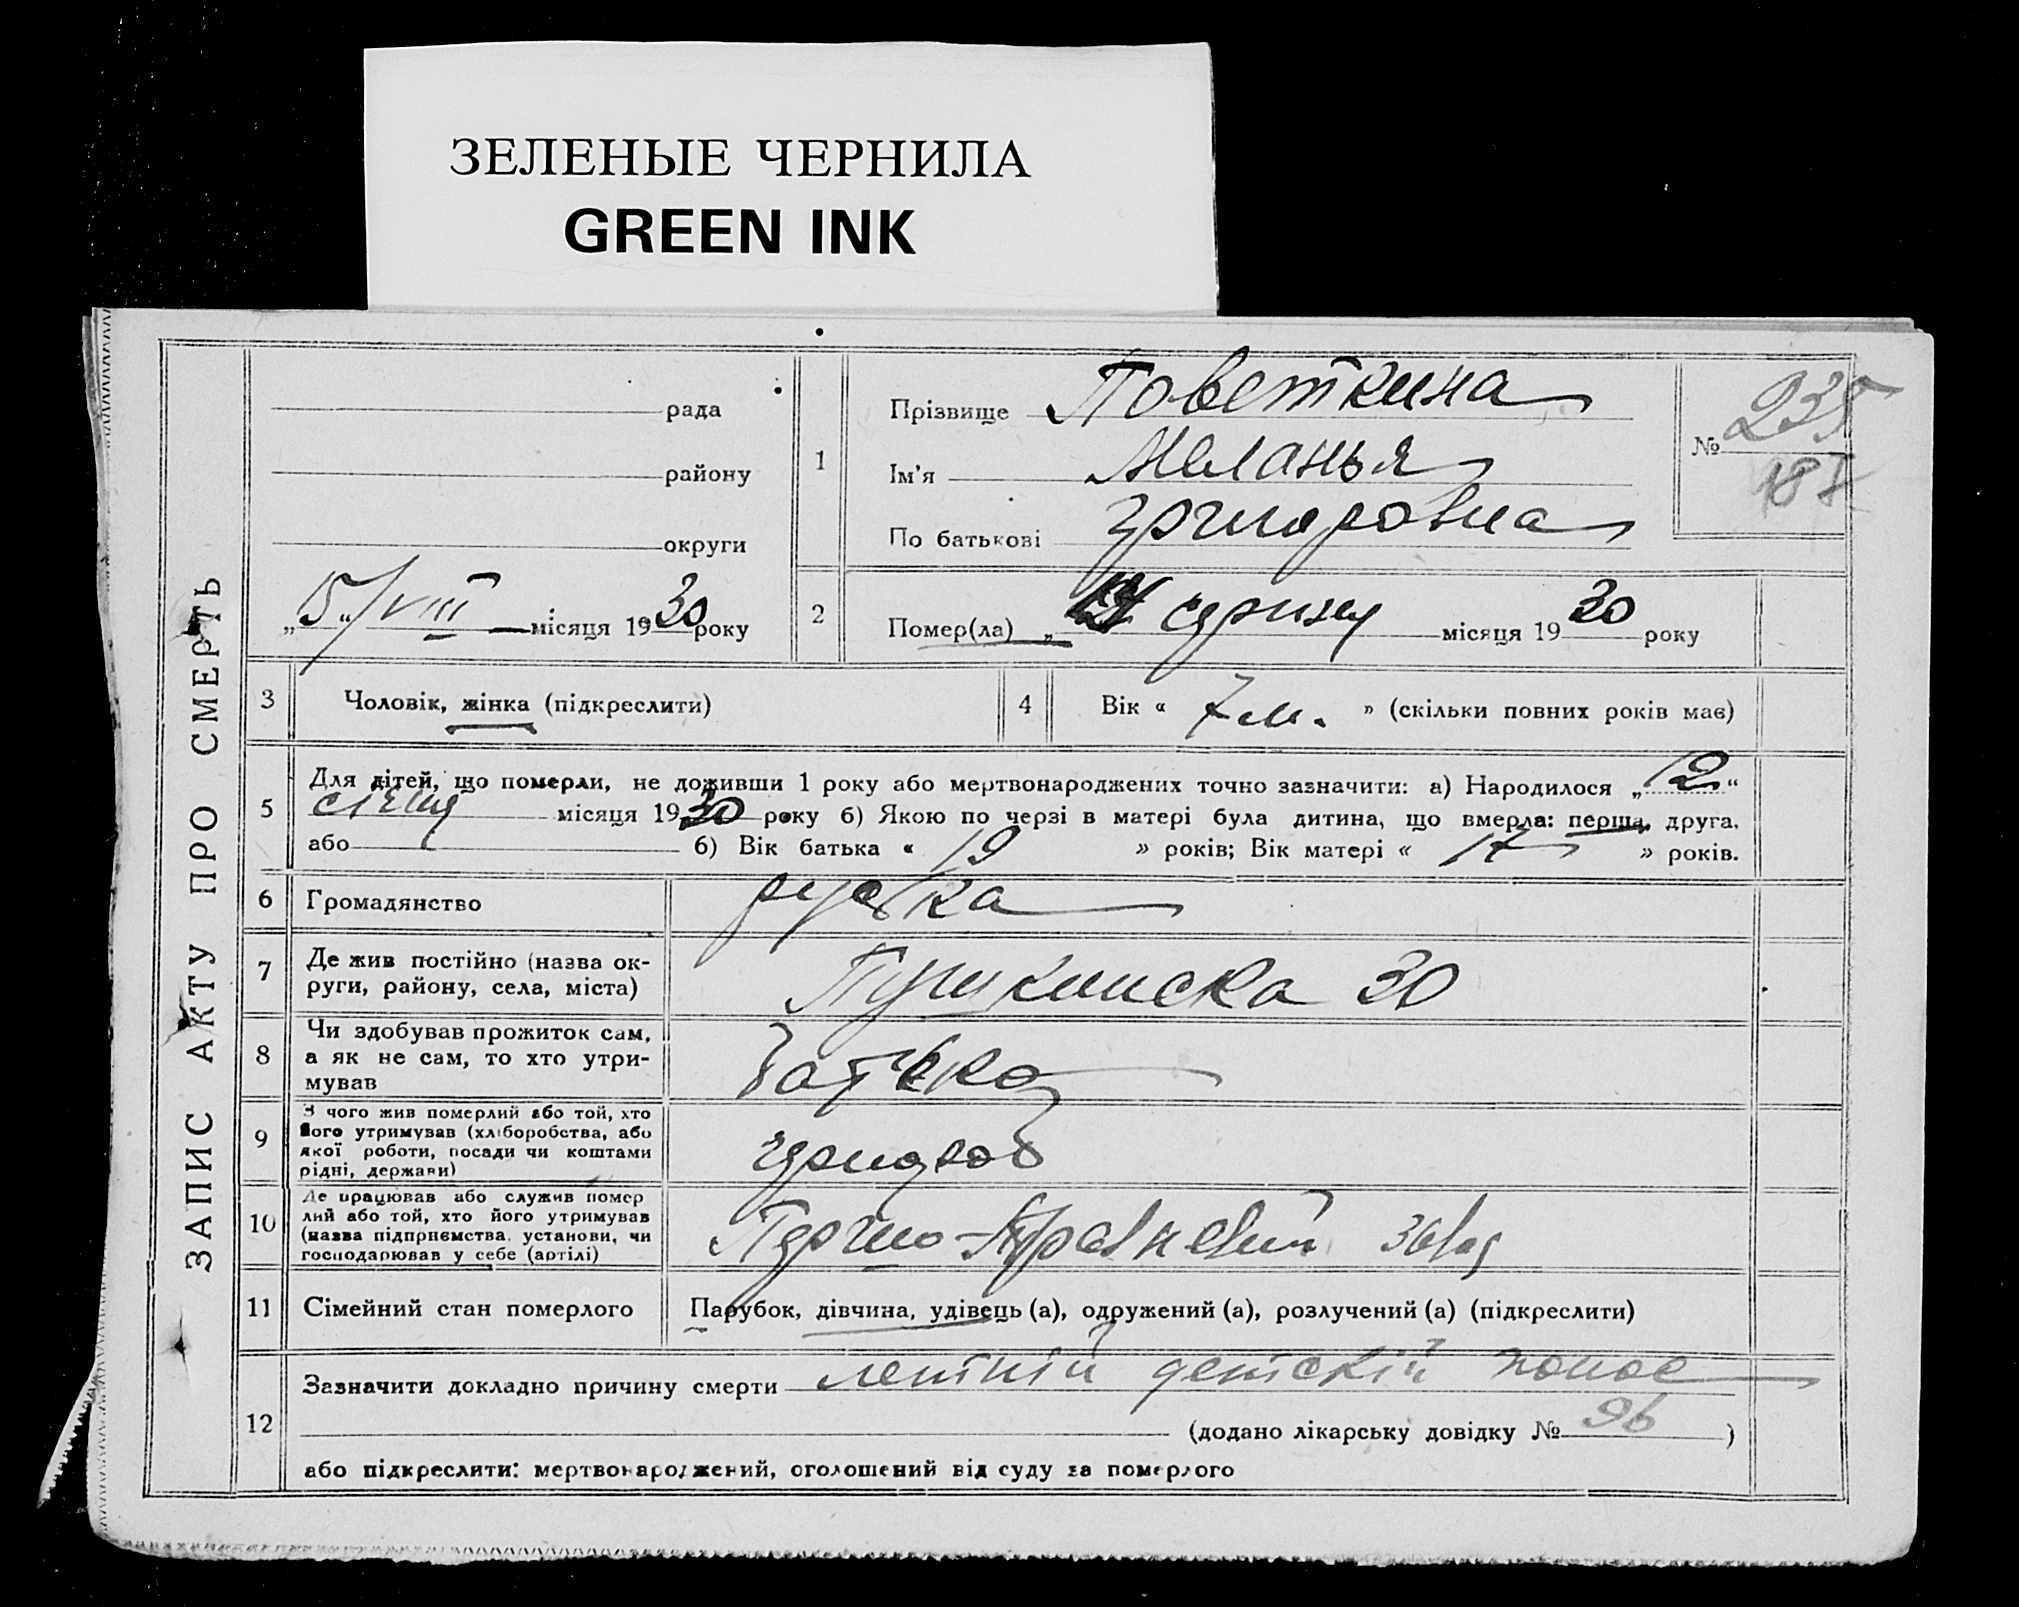 ЗЕЛЕНЫЕ ЧЕРНИЛА
GREEN INK
ЗАПИС АКТУ ПРО СМЕРТЬ
рада
району
округи
„5“/VIII місяця 1930 року
1
Прізвище Поветкина
Ім'я Меланья
По батькові Григоровна
№ 235
187
2
Помер(ла) „ серпня місяця 1930 року
3
Чоловік, жінка (підкреслити)
4
Вік « 7 м. » (скільки повних років має)
5
Для дітей, що померли, не доживши 1 року або мертвонароджених точно зазначити: а) Народилося „12“
січня місяця 1930 року б) Якою по черзі в матері була дитина, що вмерла: перша, друга,
або б) Вік батька « 19 » років; Вік матері « 17 » років.
6
Громадянство
руська
7
Де жив постійно (назва ок-
руги, району, села, міста)
Пушкинска 30
8
Чи здобував прожиток сам,
а як не сам, то хто утри-
мував
батько
9
З чого жив померлий або той, хто
його утримував (хліборобства, або
якої роботи, посади чи коштами
рідні, держави)
10
Де працював або служив помер
лий або той, хто його утримував
(назва підприємства, установи, чи
господарював у себе (артілі)
завод
11
Сімейний стан померлого
Парубок, дівчина, удівець (а), одружений (а), розлучений (а) (підкреслити)
12
Зазначити докладно причину смерти летній детскій понос
(додано лікарську довідку № 96 )
або підкреслити: мертвонароджений, оголошений від суду за померлого